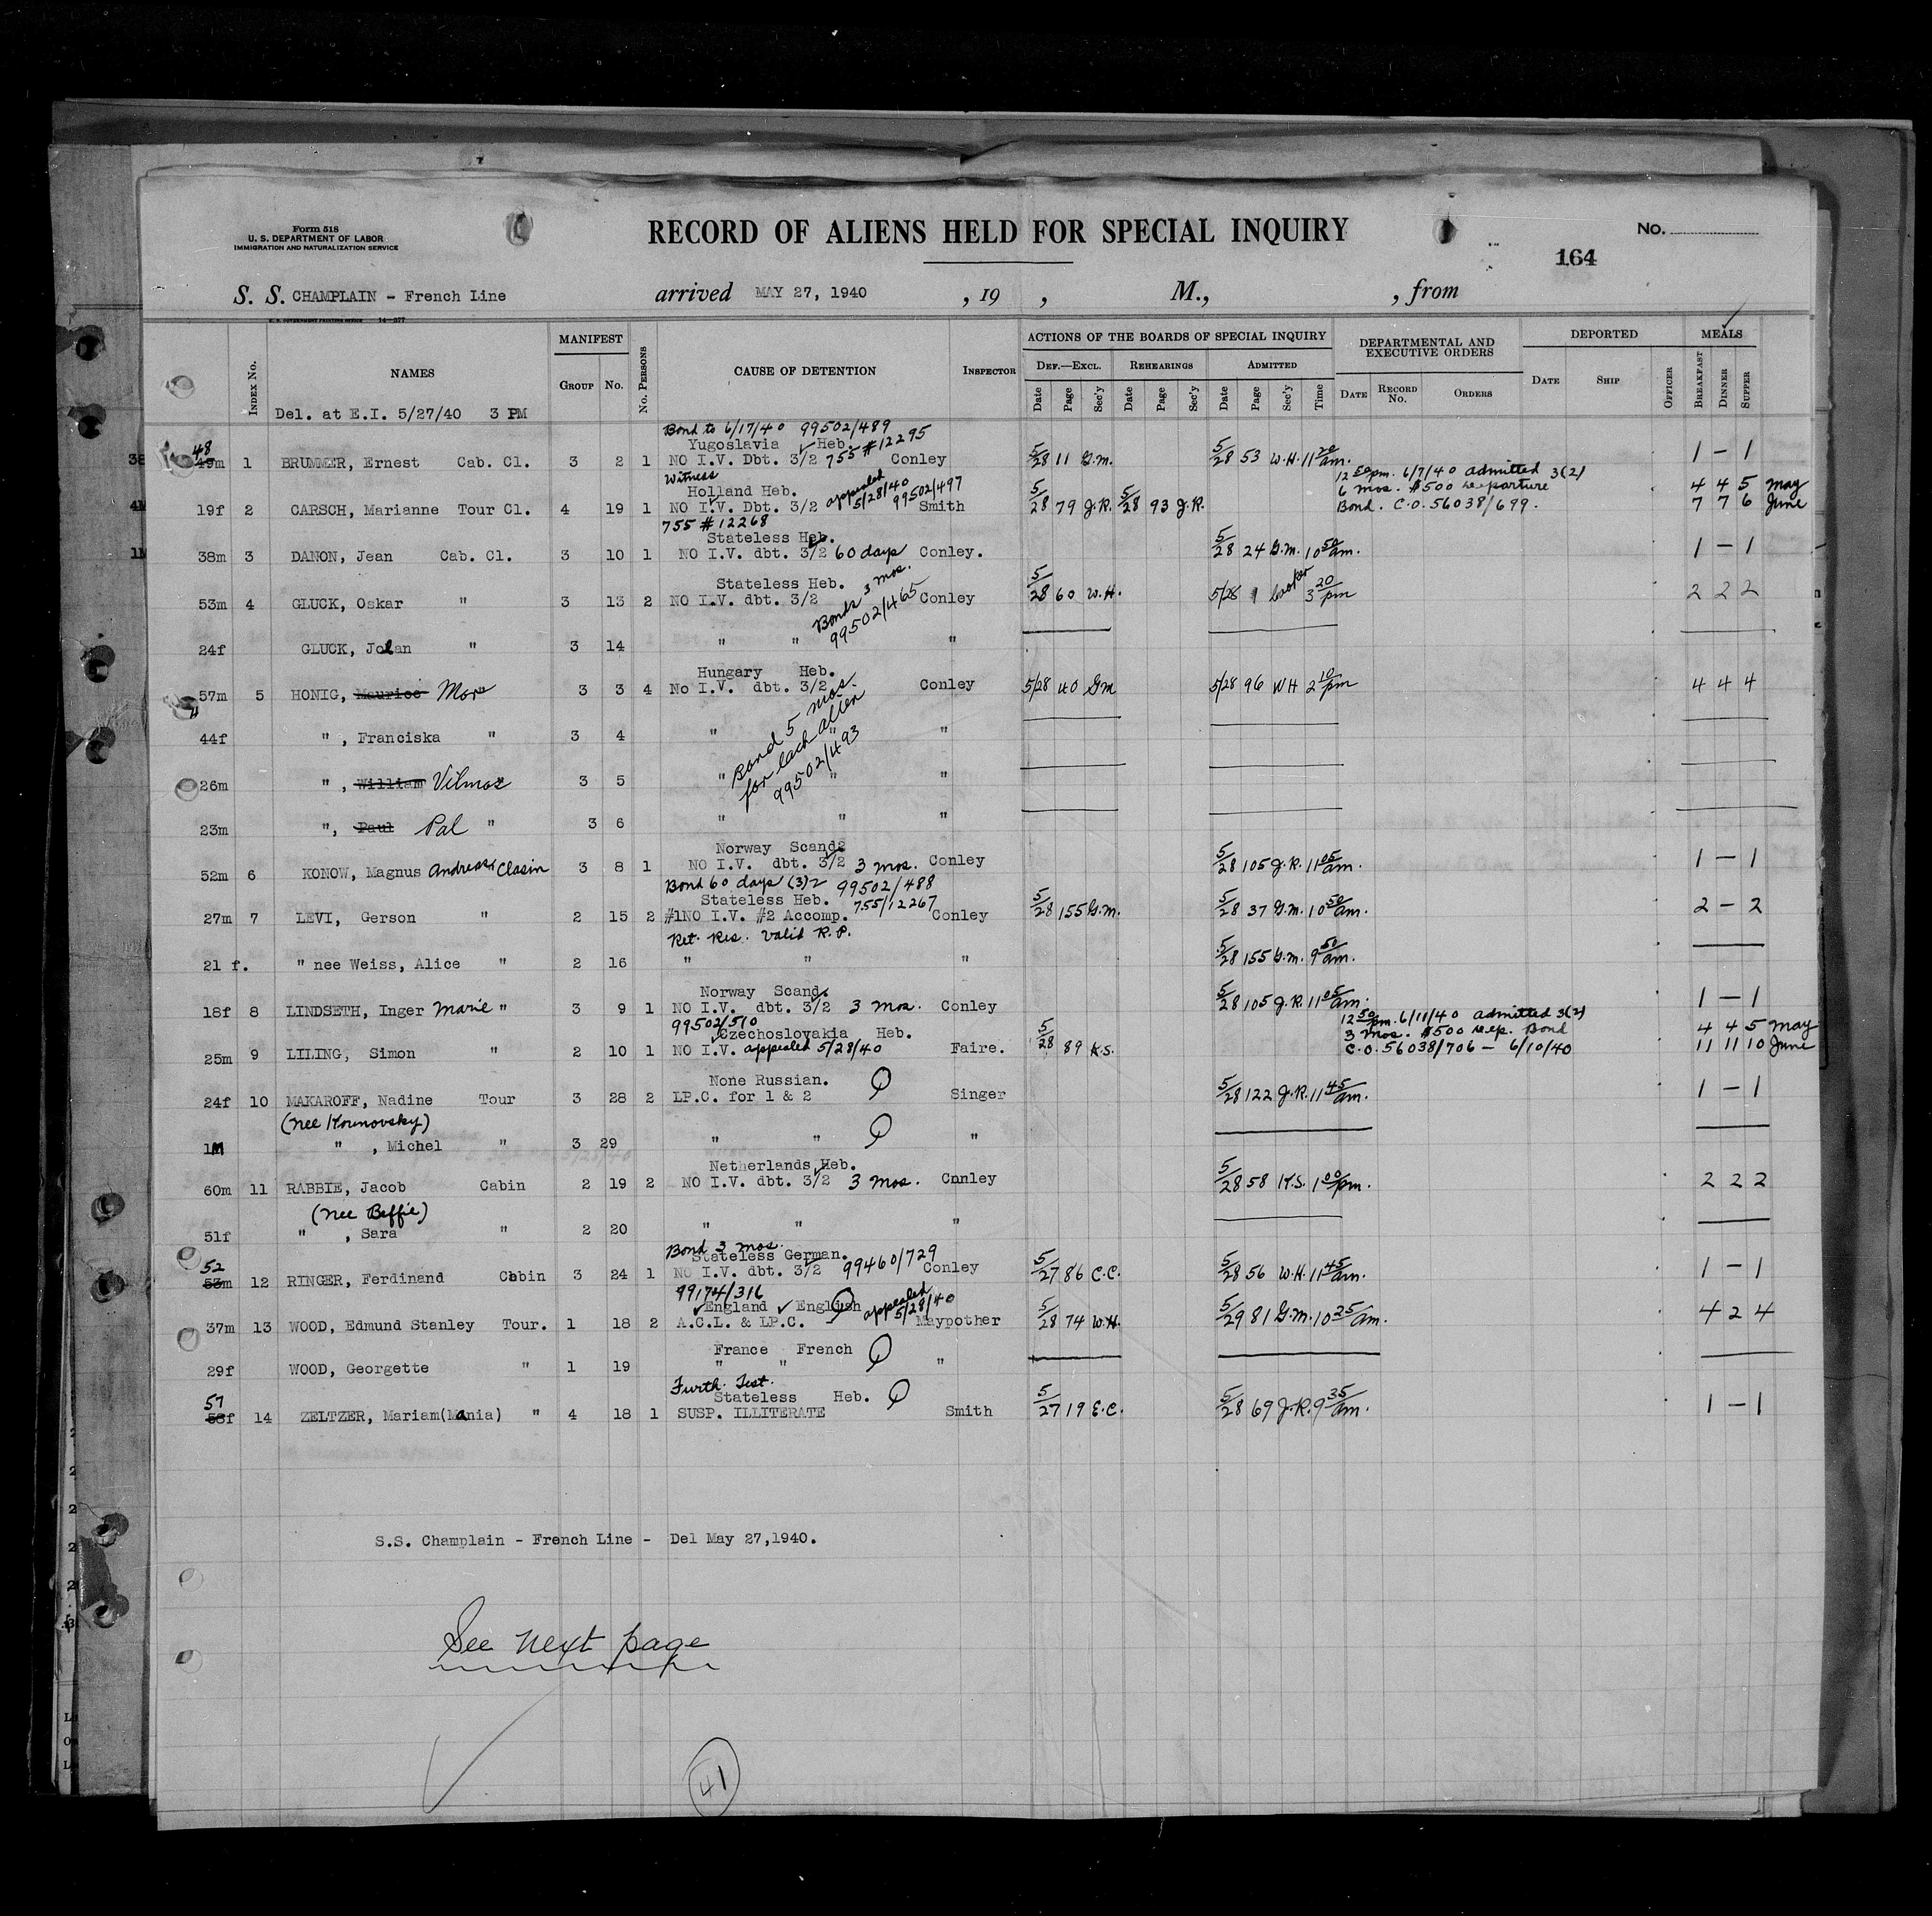 Form 518
U. S. DEPARTMENT OF LABOR
IMMIGRATION AND NATURALIZATION SERVICE
RECORD OF ALIENS HELD FOR SPECIAL INQUIRY
No.
164
S. S. CHAMPLAIN - French Line arrived MAY 27, 1940 , 19 , M., , from
INDEX No. NAMES MANIFEST GROUP No. No. PERSONS CAUSE OF DETENTION INSPECTOR ACTIONS OF THE BOARDS OF SPECIAL INQUIRY DEPARTMENTAL AND EXECUTIVE ORDERS DEPORTED MEALS
DEF.—EXCL. REHEARINGS ADMITTED
Date Page Sec'y Date Page Sec'y Date Page Sec'y Time DATE RECORD No. ORDERS DATE SHIP OFFICER BREAKFAST DINNER SUPPER
Del. at E.I. 5/27/40 3 PM
Bond to 6/17/40 99502/489
48 Yugoslavia Heb. 755 #12295
49m 1 BRUMMER, Ernest Cab. Cl. 3 2 1 NO I.V. Dbt. 3/2 Conley 5/28 11 G.M. 5/28 53 W.H. 11 20 am. 1 - 1
Witness
Holland Heb. appealed 5/28/40 99502/497
12 50 pm. 6/7/40 admitted 3(2)
6 mos. $500 departure 4 4 5 May
19f 2 CARSCH, Marianne Tour Cl. 4 19 1 NO I.V. Dbt. 3/2 Smith 5/28 79 J.R. 5/28 93 J.R. Bond. C.O. 56038/699. 7 7 6 June
755 #12268
Stateless Heb.
38m 3 DANON, Jean Cab. Cl. 3 10 1 NO I.V. dbt. 3/2 60 days Conley. 5/28 24 G.M. 10 50 am. 1 - 1
Stateless Heb.
53m 4 GLUCK, Oskar " 3 13 2 NO I.V. dbt. 3/2 Conley 5/28 60 W.H. 5/28 1 3 20 pm 2 2 2
Bonds 3 mos.
99502/465
24f GLUCK, Jolan " 3 14 " " "
Hungary Heb.
57m 5 HONIG, Maurice Mor " 3 3 4 No I.V. dbt. 3/2 Conley 5/28 40 GM 5/28 96 WH 2 10 pm 4 4 4
Bond 5 mos.
for each alien
99502/493
44f " , Franciska " 3 4 " " "
26m " , William Vilmos " 3 5 " " "
23m ", Paul Pal " 3 6 " " "
Norway Scand
52m 6 KONOW, Magnus Andreas Clasin 3 8 1 NO I.V. dbt. 3/2 3 mos. Conley 5/28 105 J.R. 11 05 am. 1 - 1
Bond 60 days (3)2 99502/488
Stateless Heb. 755/12267
27m 7 LEVI, Gerson " 2 15 2 #1NO I.V. #2 Accomp. Conley 5/28 155 G.M. 5/28 37 G.M. 10 50 am. 2 - 2
Ret. Res. Valid R.P.
21 f. " nee Weiss, Alice " 2 16 " " " 5/28 155 G.M. 9 50 am.
Norway Scand.
18f 8 LINDSETH, Inger Marie " 3 9 1 NO I.V. dbt. 3/2 3 mos. Conley 5/28 105 J.R. 11 05 am. 1 - 1
99502/510
Czechoslovakia Heb.
12 50 pm. 6/11/40 admitted 3(2)
3 mos. $500 dep. Bond 4 4 5 May
25m 9 LILING, Simon " 2 10 1 NO I.V. appealed 5/28/40 Faire. 5/28 89 K.S. C.O. 56038/706 - 6/10/40 11 11 10 June
None Russian.
24f 10 MAKAROFF, Nadine Tour 3 28 2 LP.C. for 1 & 2 Singer 5/28 122 J.R. 11 45 am. 1 - 1
(nee Kounovsky)
1M " , Michel " 3 29 " " "
Netherlands Heb.
60m 11 RABBIE, Jacob Cabin 2 19 2 NO I.V. dbt. 3/2 3 mos. Cnnley 5/28 58 K.S. 1 00 pm. 2 2 2
(nee Beffie)
51f " , Sara " 2 20 " " "
Bond 3 mos.
52 Stateless German. 99460/729
53m 12 RINGER, Ferdinand Cbbin 3 24 1 NO I.V. dbt. 3/2 Conley 5/27 86 C.C. 5/28 56 W.H. 11 45 am. 1 - 1
99174/316
England English appealed 5/28/40
37m 13 WOOD, Edmund Stanley Tour. 1 18 2 A.C.L. & LP.C. Maypother 5/28 74 W.H. 5/29 81 G.M. 10 25 am. 4 2 4
France French
29f WOOD, Georgette " 1 19 " " "
Furth. Test.
57 Stateless Heb.
58f 14 ZELTZER, Mariam(Mania) " 4 18 1 SUSP. ILLITERATE Smith 5/27 19 E.C. 5/28 69 J.R. 9 35 am. 1 - 1
S.S. Champlain - French Line - Del May 27,1940.
See next page
41